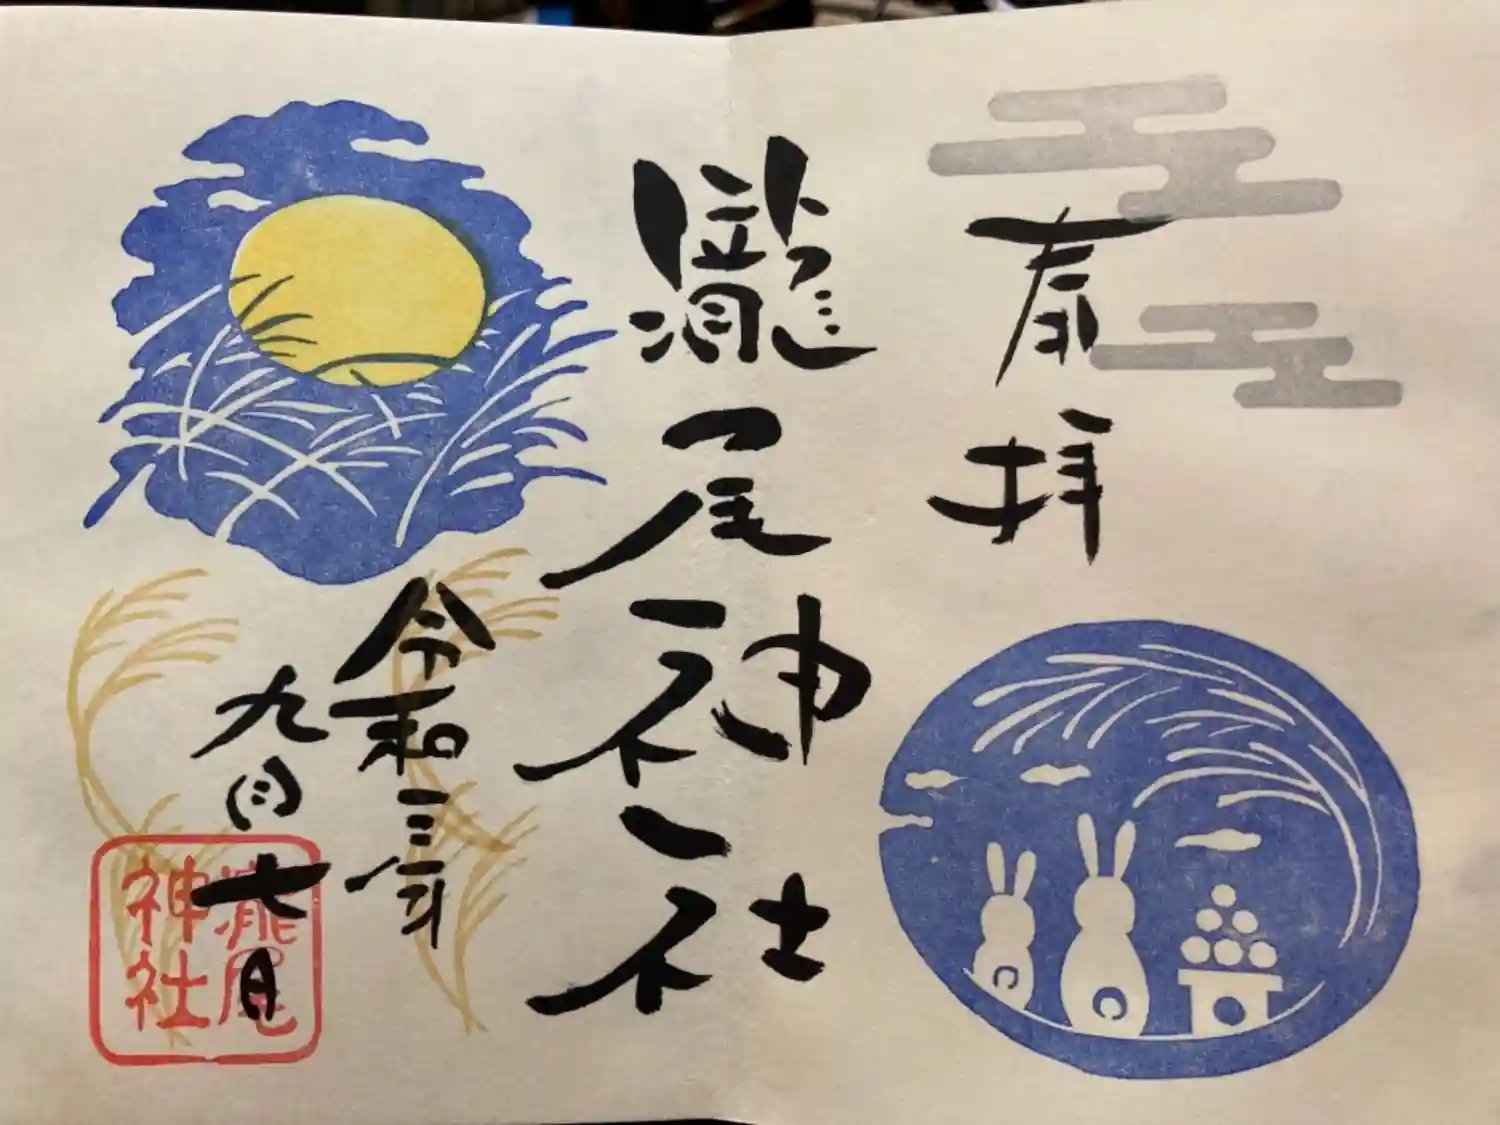 奉拝
瀧尾神社
令和三年
九月七日
瀧尾
神社